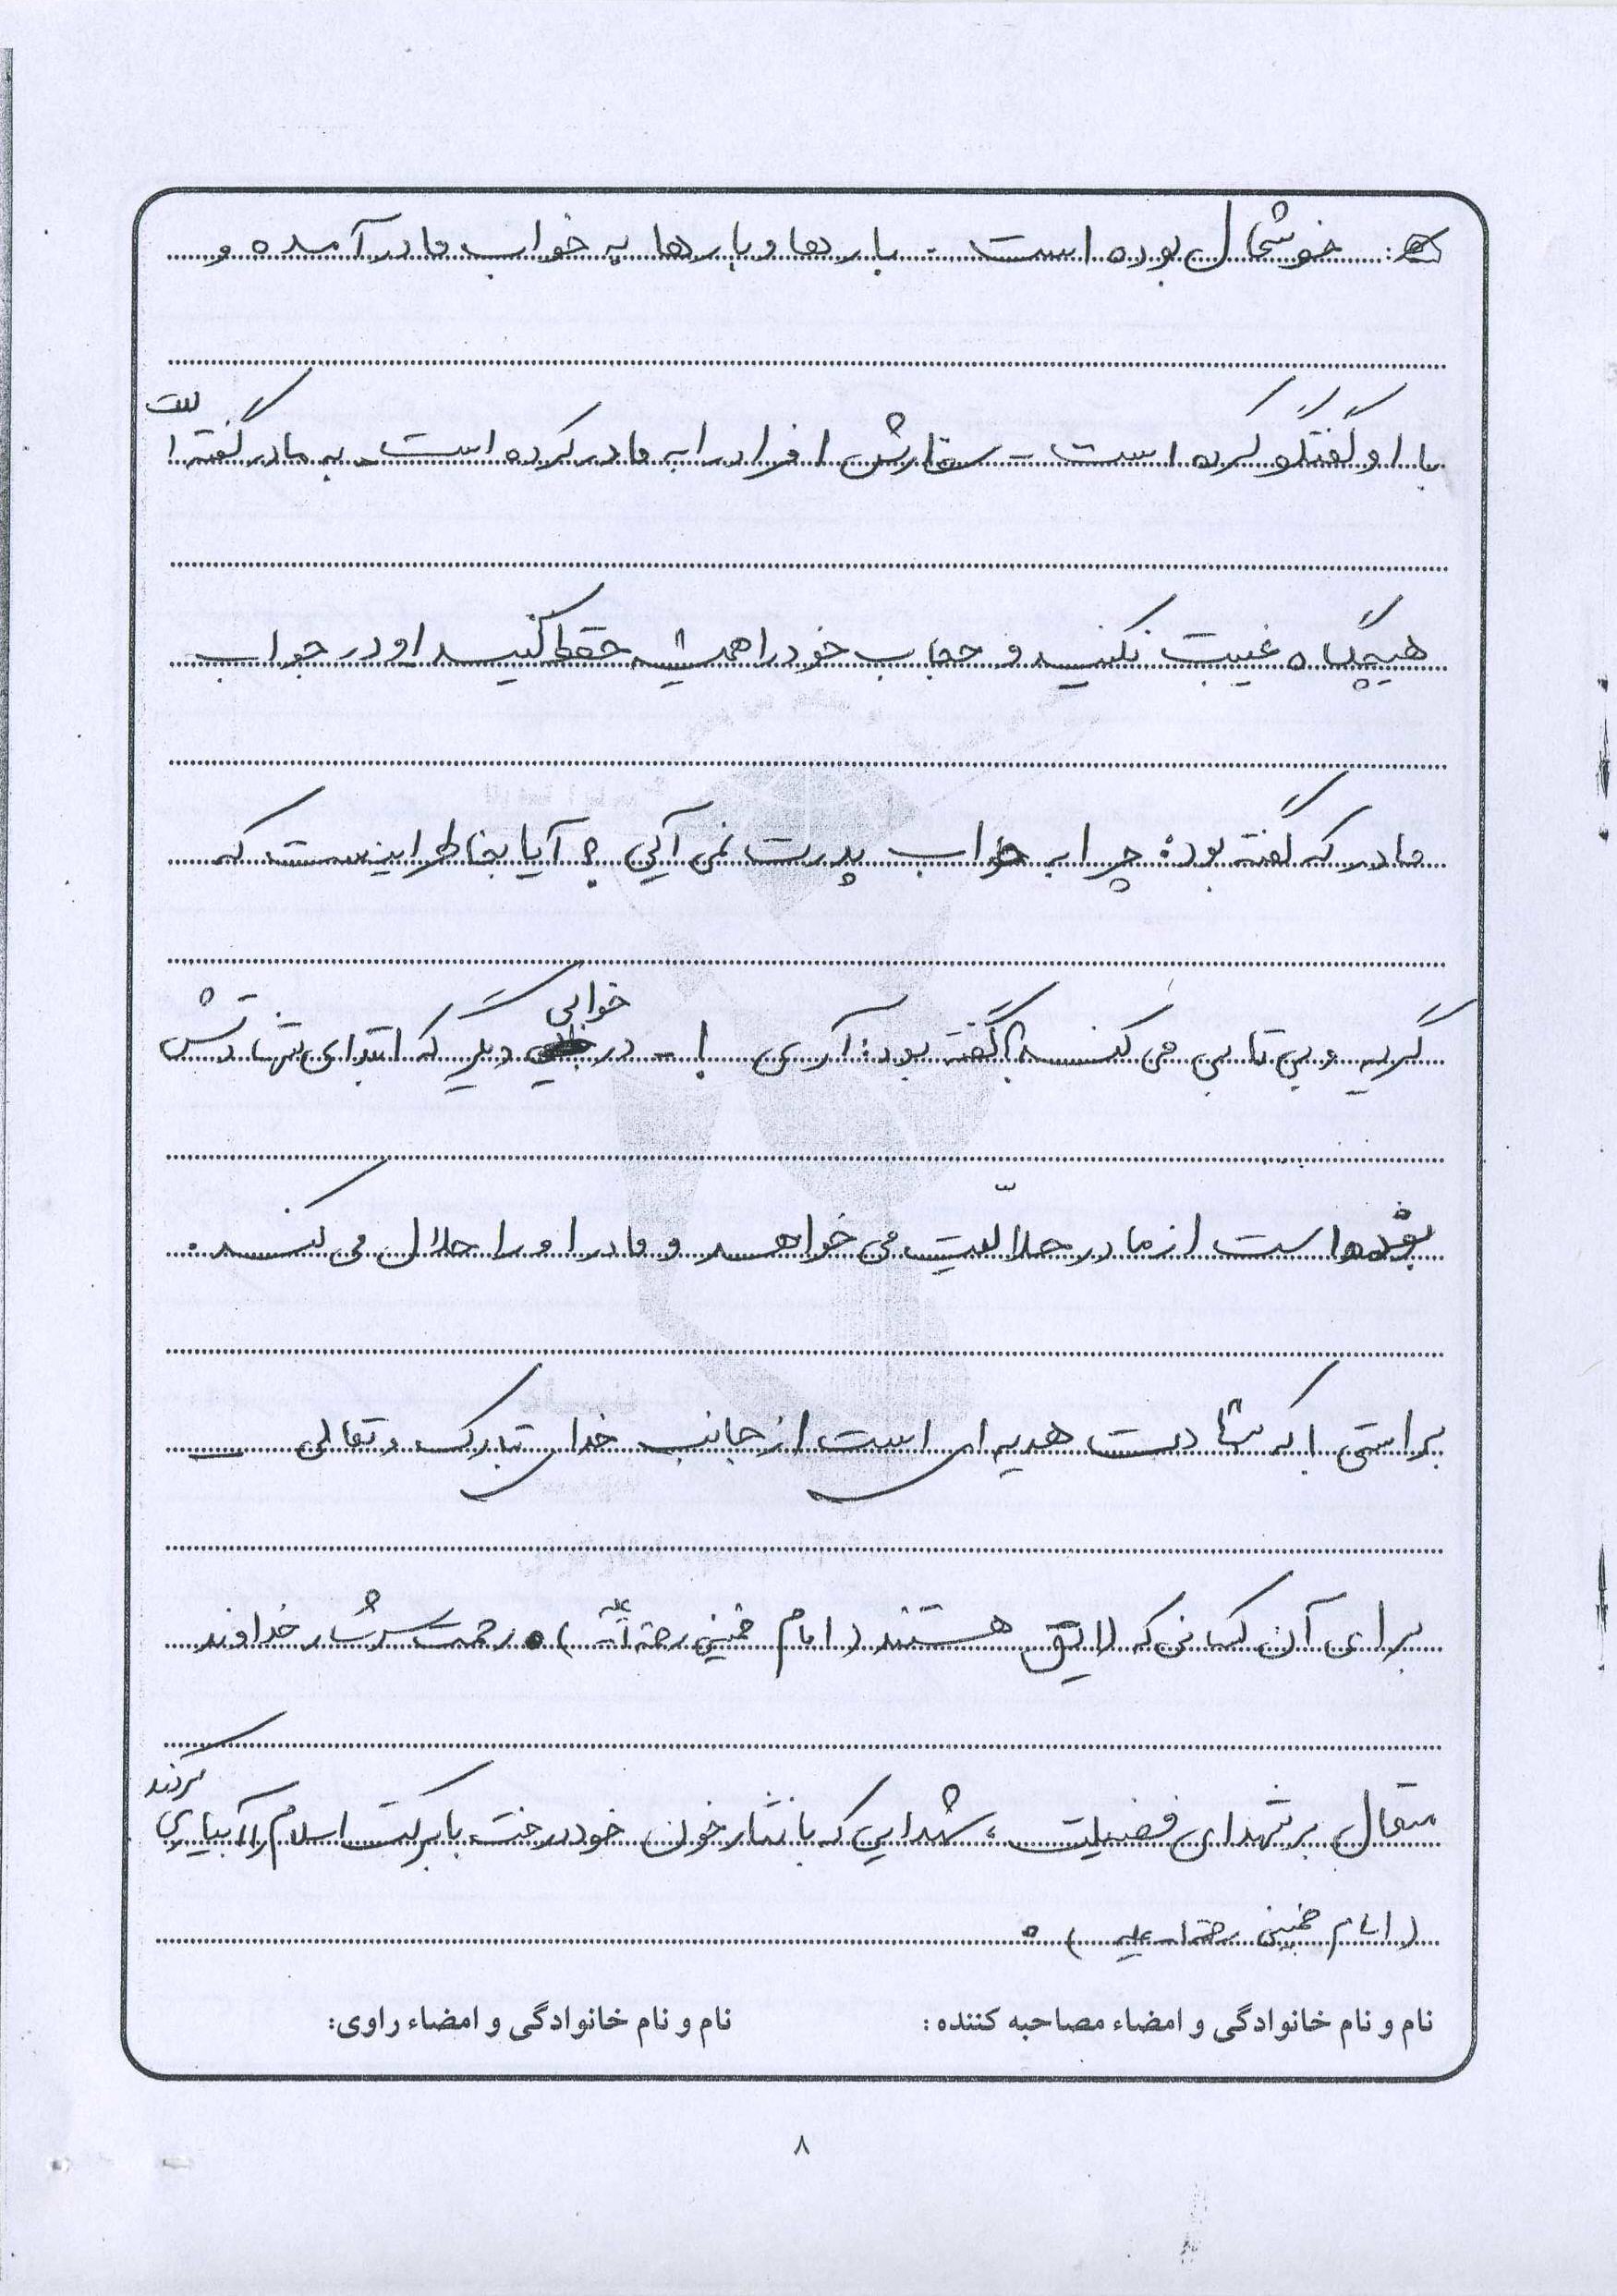 خوشحال بوده است - بارها و بارها به خواب مادر آمده و
با او گفتگو کرده است - سفارش افراد را به مادر کرده است . به مادر گفته است
هیچگاه غیبت نکنید و حجاب خود را همیشه حفظ کنید او در جواب
مادر که گفته بود: چرا به خواب پدرت نمی آئی ؟ آیا بخاطر اینست که
گریه و بی تابی می کند؟ گفته بود: آری ! - در خوابی دیگر که ابتدای شهادتش
بوده است از مادر حلالّیت می خواهد و مادر او را حلال می کند .
براستی که شهادت هدیه ای است از جانب خدای تبارک و تعالی
برای آن کسانی که لایق هستند ( امام خمینی رحمة الله علیه ) . رحمت سرشار خداوند
متعال بر شهدای فضیلت ، شهدایی که با نثار خون خود درخت با برکت اسلام را آبیاری کردند
( امام خمینی رحمة الله علیه ) .
نام و نام خانوادگی و امضاء مصاحبه کننده : نام و نام خانوادگی و امضاء راوی:
۸